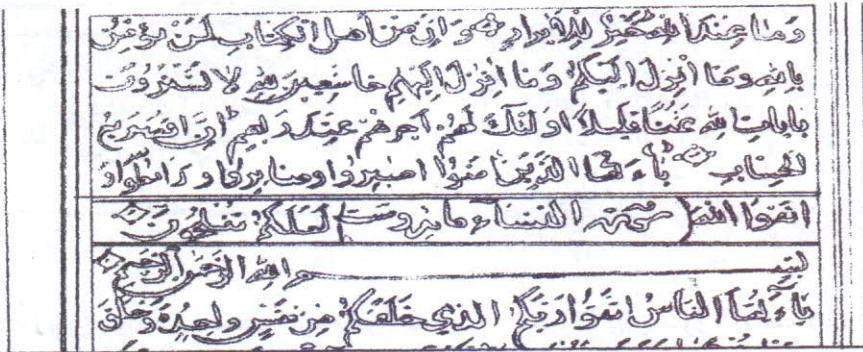 وما عند الله خير للابرار وان من اهل الكتاب لمن يؤمن
بالله وما انزل اليكم وما انزل اليهم خاشعين لله لا يشترون
بايات الله ثمنا قليلا اولئك لهم اجرهم عند ربهم ان الله سريع
الحساب يأيها الذين ءامنوا اصبروا وصابروا ورابطوا و
اتقوا الله سورة النساء لعلكم تفلحون
بسم الله الرحمن الرحيم
يأيها الناس اتقوا ربكم الذي خلقكم من نفس واحدة وخلق